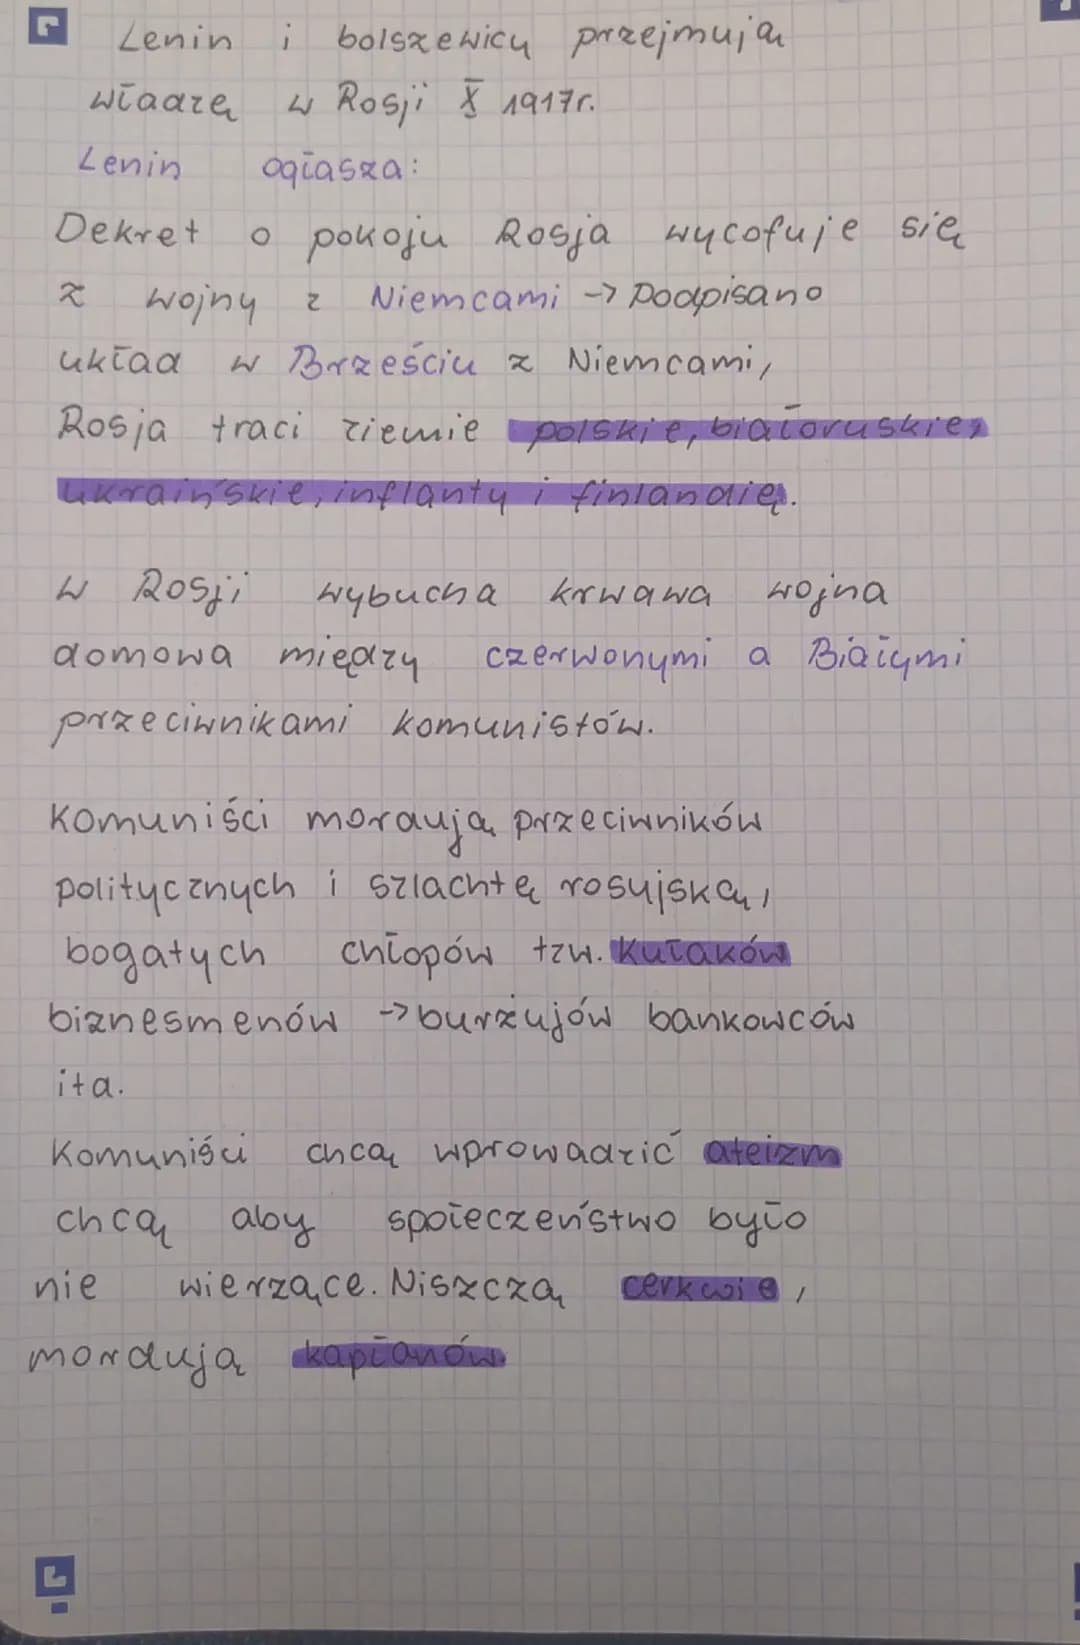 Lenin i bolszewicy przejmują
władzę w Rosji X 1917r.
Lenin ogłasza:
Dekret o pokoju Rosja wycofuje się
z wojny z Niemcami -> Podpisano
układ w Brześciu z Niemcami,
Rosja traci ziemie polskie, białoruskie,
ukraińskie, inflanty i finlandię.
w Rosji wybucha krwawa wojna
domowa między czerwonymi a Białymi
przeciwnikami komunistów.
Komuniści mordują przeciwników
politycznych i szlachtę rosyjską,
bogatych chłopów tzw. Kułaków
biznesmenów -> burżujów bankowców
itd.
Komuniści chcą wprowadzić ateizm
chcą aby społeczeństwo było
nie wierzące. Niszczą cerkwie,
mordują kapłanów.